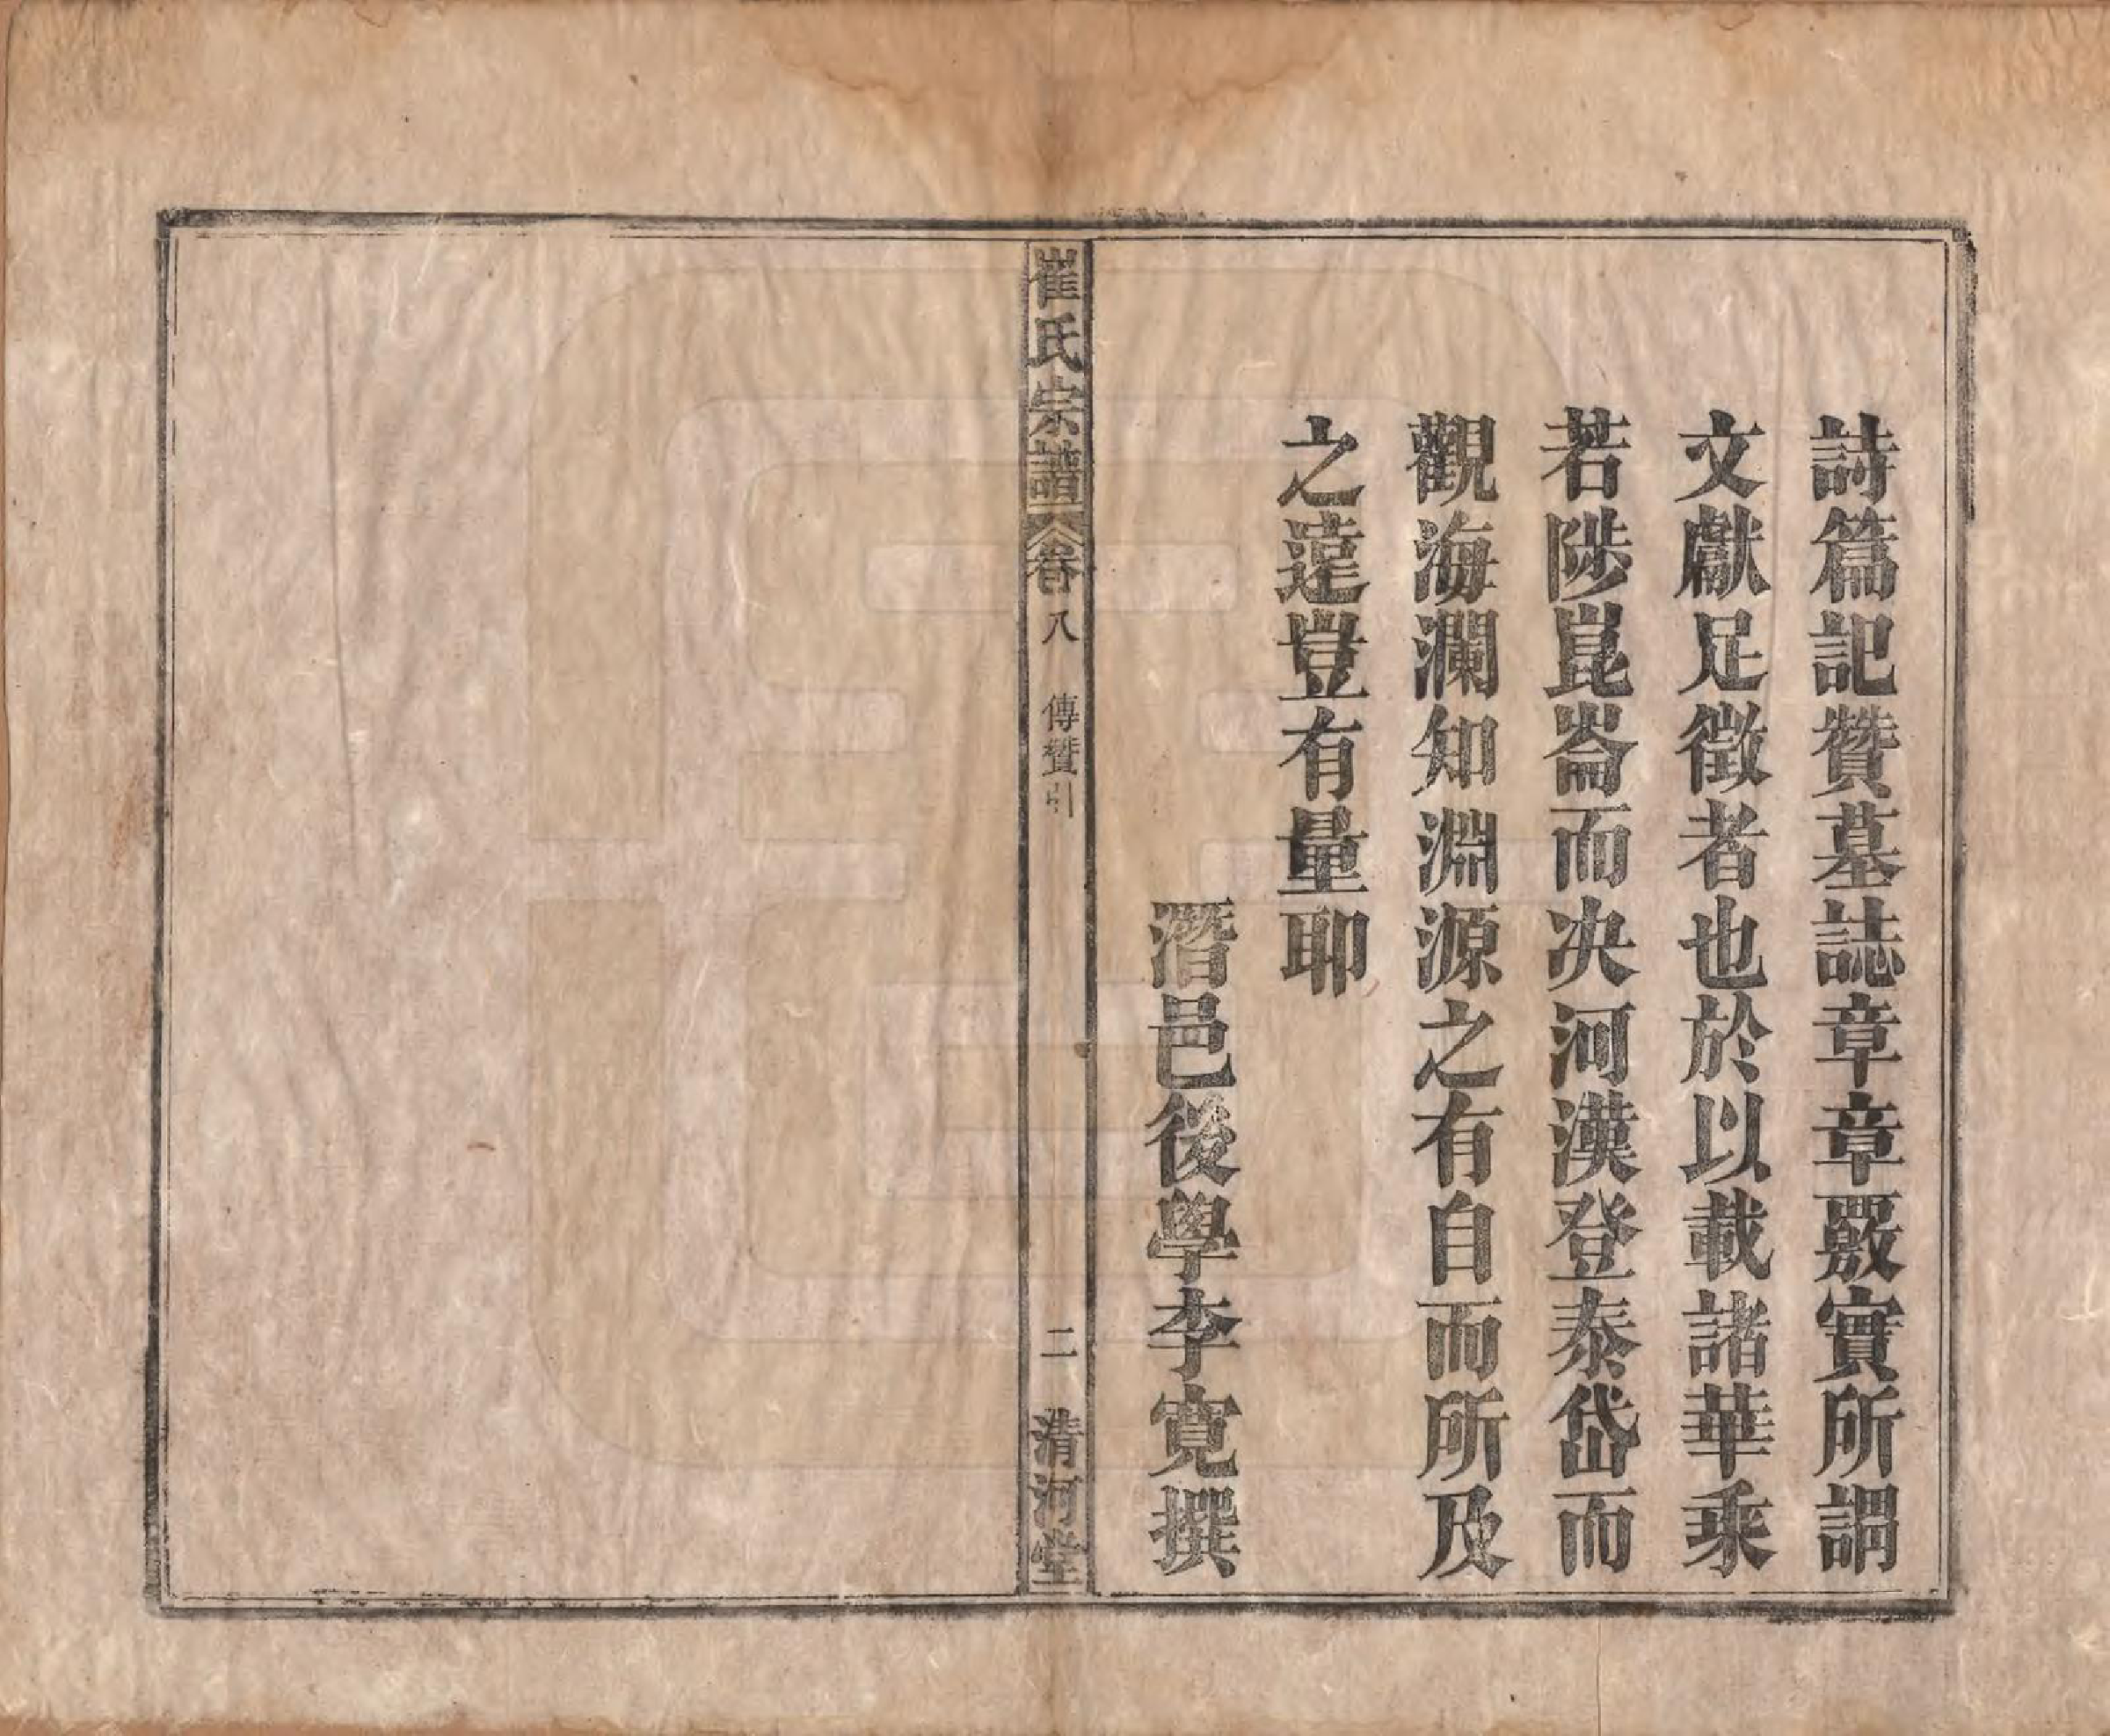 詩篇記贊墓誌章章覈實所謂
文獻足徵者也於以載諸華乘
若陟崑崙而決河漢登泰岱而
觀海瀾知淵源之有自而所及
之遠豈有量耶
潛邑後學李寬撰
崔氏宗譜 卷八 傳贊引 二 清河堂